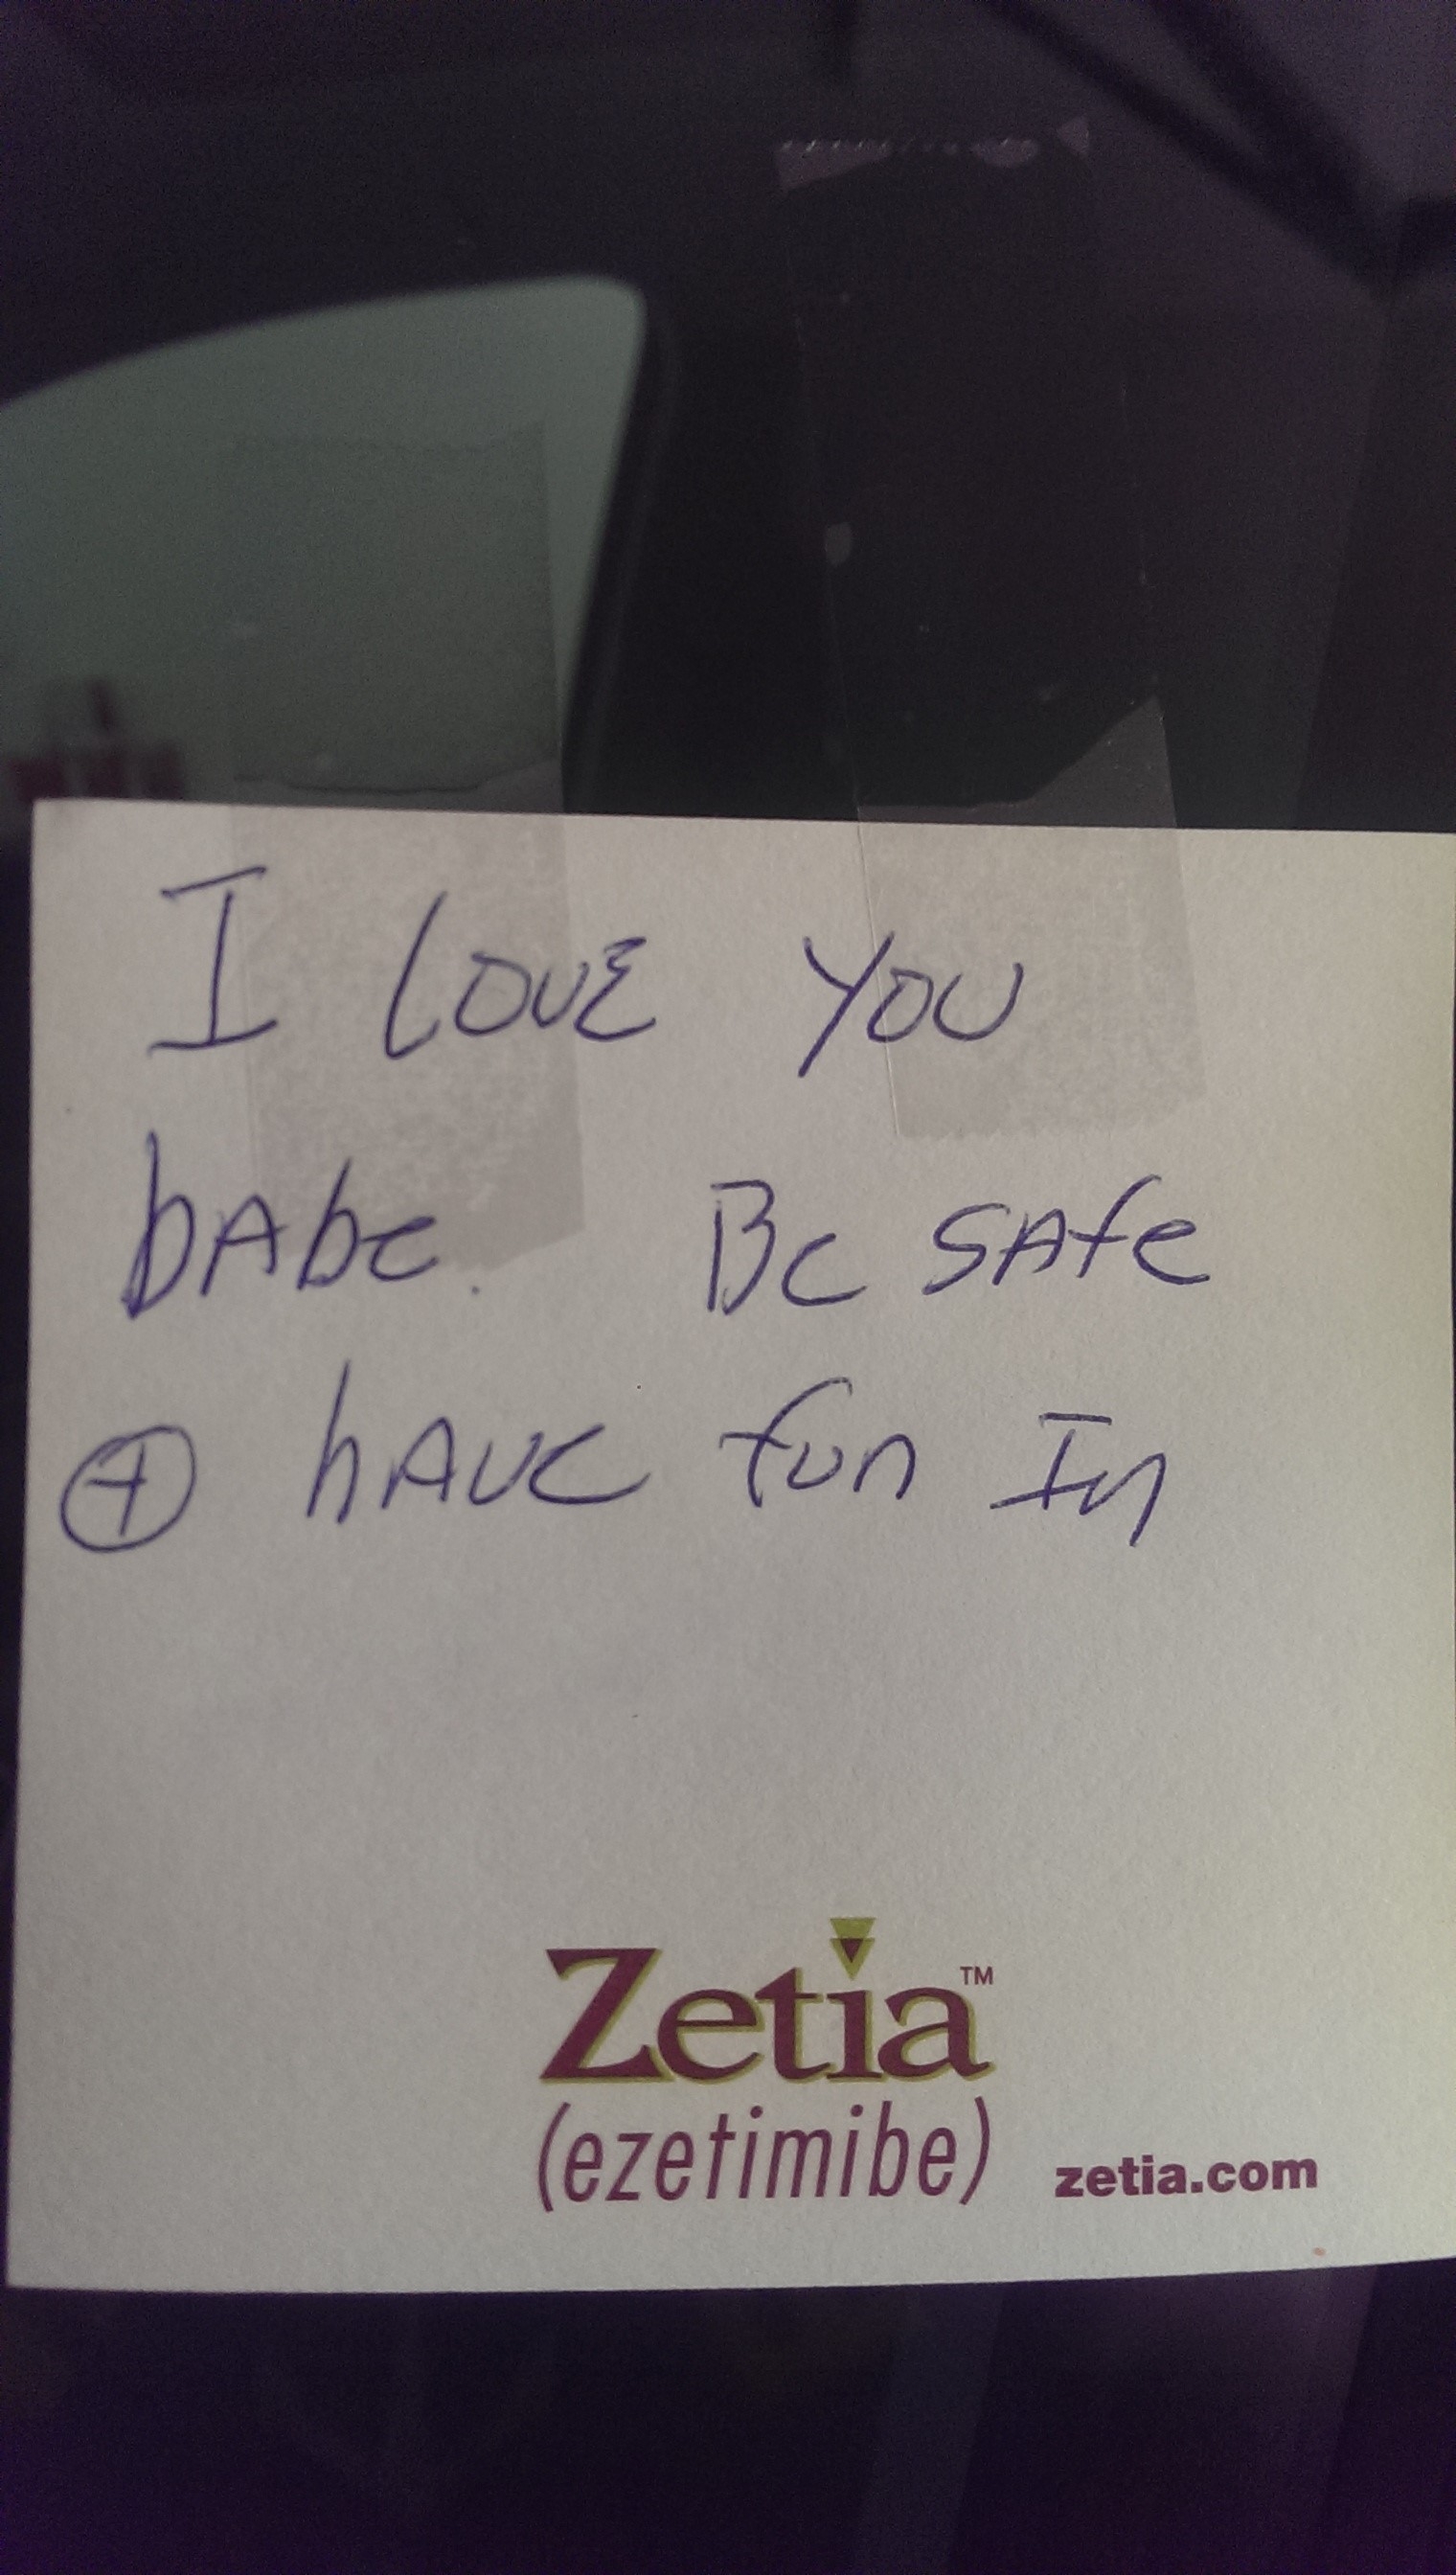 I LOVE YOU
bAbe. Be SAfe
⊕ hAVe fun In
Zetia™
(ezetimibe) zetia.com